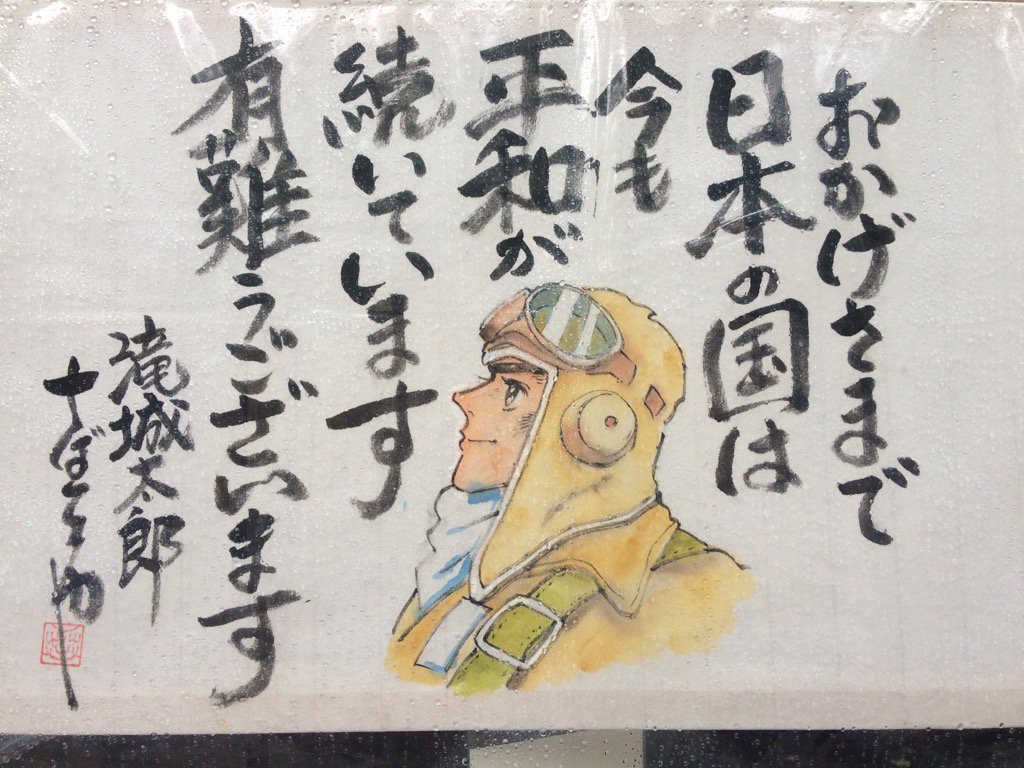 おかげさまで
日本の国は
今も
平和が
続いています
有難うございます
滝城太郎